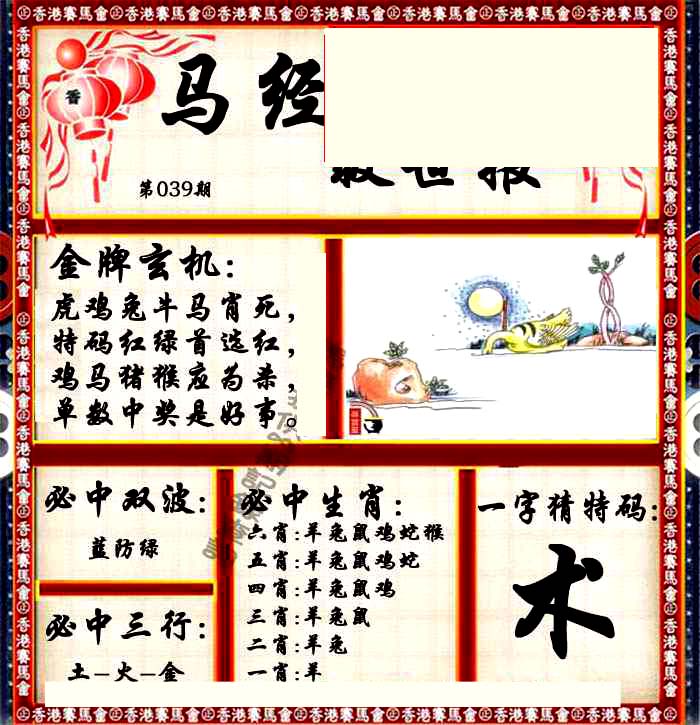 正香港賽馬會正香港賽馬會正香港賽馬會正香港賽馬會正香港賽馬會正香港賽馬會
香
马经
救世报
第039期
金牌玄机:
虎鸡兔牛马肖死,
特码红绿首选红,
鸡马猪猴应为杀,
单数中奖是好事。
必中双波:
蓝防绿
必中三行:
土-火-金
必中生肖:
六肖:羊兔鼠鸡蛇猴
五肖:羊兔鼠鸡蛇
四肖:羊兔鼠鸡
三肖:羊兔鼠
二肖:羊兔
一肖:羊
一字猜特码:
术